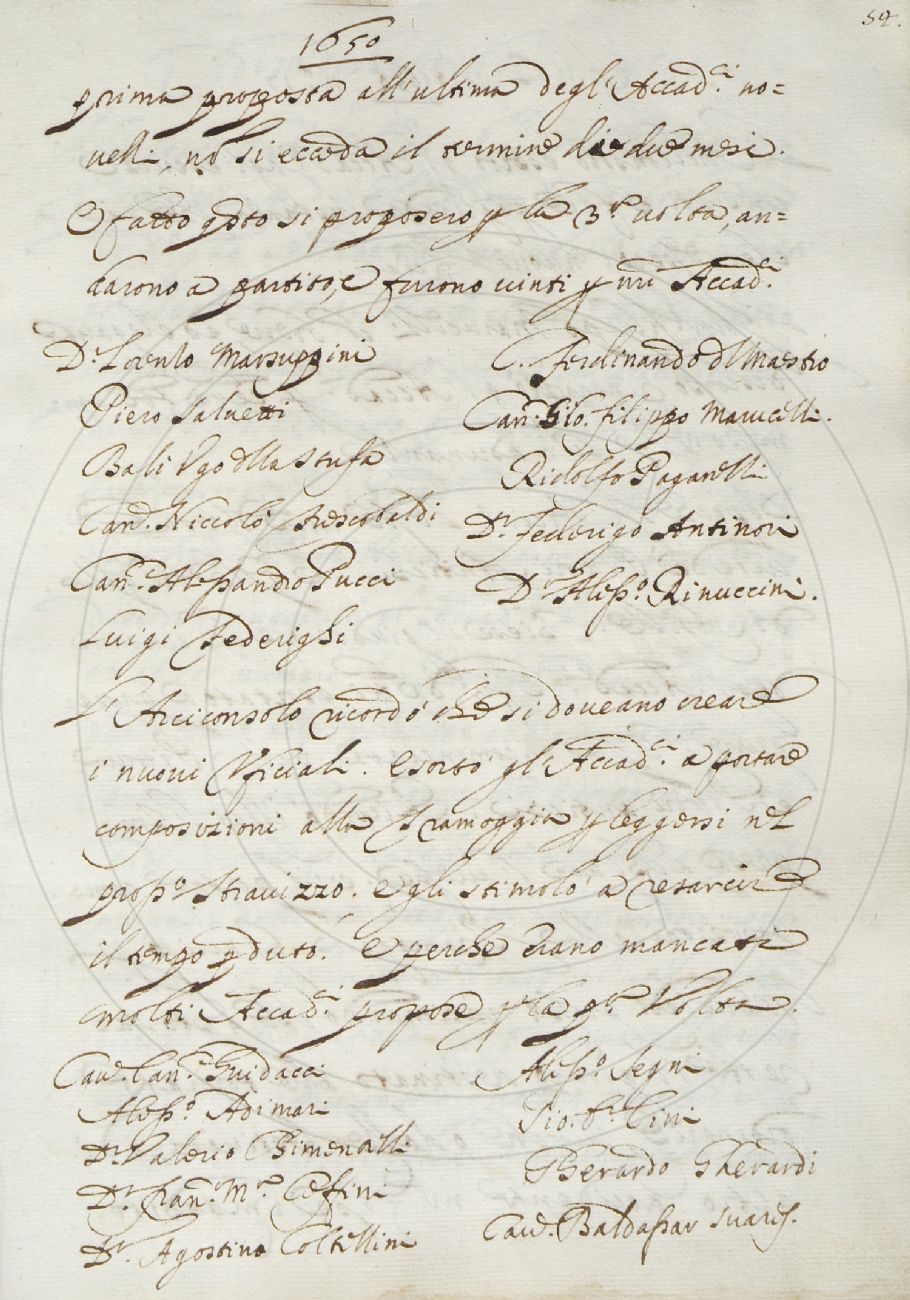 54.
1650
prima proposta all'ultima degl'Accad.ci no=
uelli, nō si ecceda il termine di due mesi.
E fatto qsto si proposero p la 3.a uolta, an=
darono a partito, e furono uinti p nri Accad.ci
D.r Lorenzo Marsuppini
Piero Saluetti
Bali Vgo dlla Stufa
Can.co Niccolò Frescobaldi
Can.co Alessandro Pucci
Luigi Federighi
C. Ferdinando dl Maestro
Can.co Gio. Filippo Marucelli.
Ridolfo Paganelli
D.r Federigo Antinori
D.r Aless.o Rinuccini.
L'Arciconsolo ricordò che si doueano creare
i nuoui Vficiali. Esortò gl'Accad.ci a portare
composizioni alla Tramoggia p leggersi nel
pross.o Strauizzo. e gli stimolò a resarcire
il tempo pduto. E perche erano mancati
molti Accad.ci propose p la p.a Volta.
Cau. Can.co Guidacci
Aless.o Adimari
D.r Valerio Chimentelli
D.r Fran.co M.a Ceffini
D.r Agostino Coltellini
Aless.o Segni
Gio. B.a Cini
Gherardo Gherardi
Cau. Baldassar Suares.